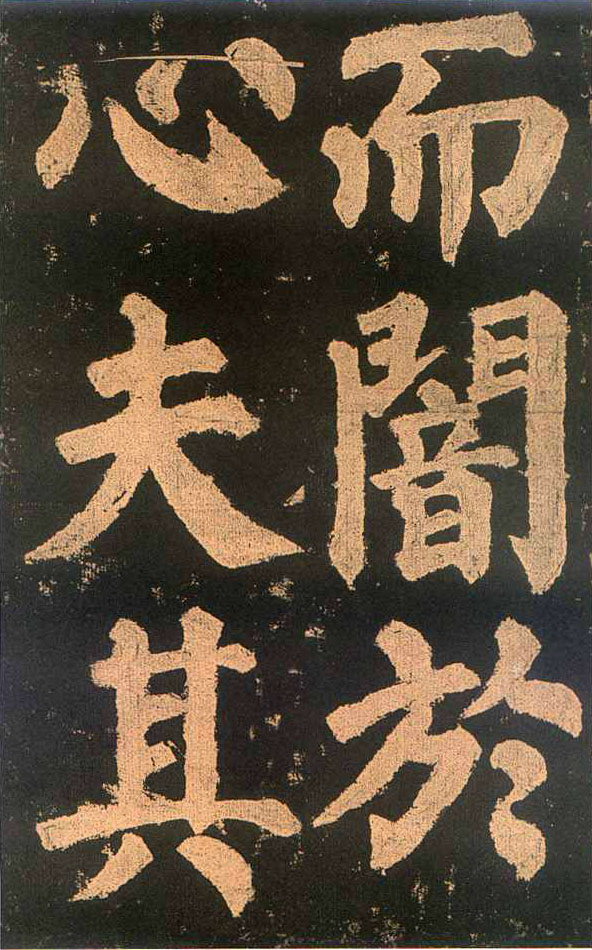 而闇於
心夫其